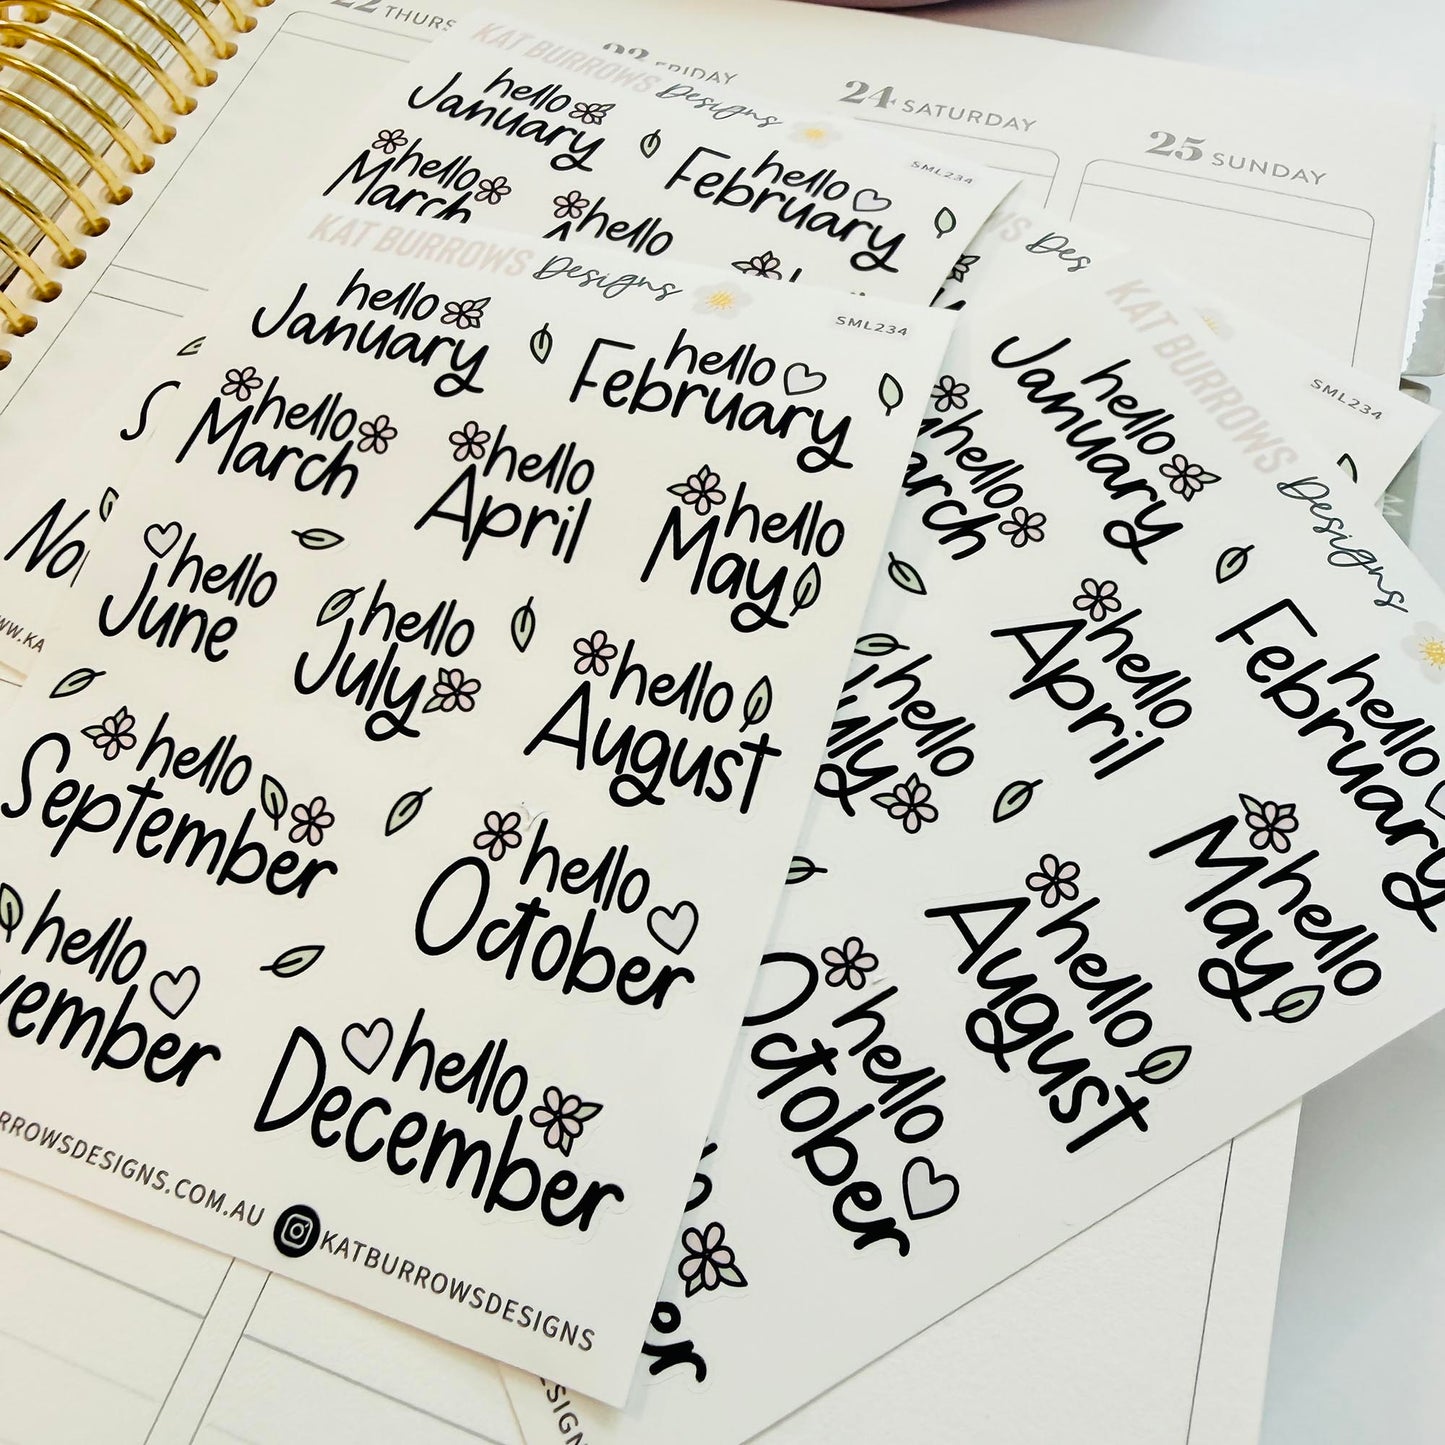 22 THURS
23 FRIDAY
24 SATURDAY
25 SUNDAY
KAT BURROWS Designs
SML234
hello January
hello February
hello March
hello
KAT BURROWS Designs
SML234
hello January
hello February
hello March
hello April
hello May
hello June
hello July
hello August
hello September
hello October
hello
vember
hello December
RROWSDESIGNS.COM.AU
KATBURROWSDESIGNS
S
No
WW.KA
WS Des
SML234
KAT BURROWS Designs
hello January
hello February
hello
arch
hello April
hello May
hello
uly
hello August
hello October
er
DESIGN